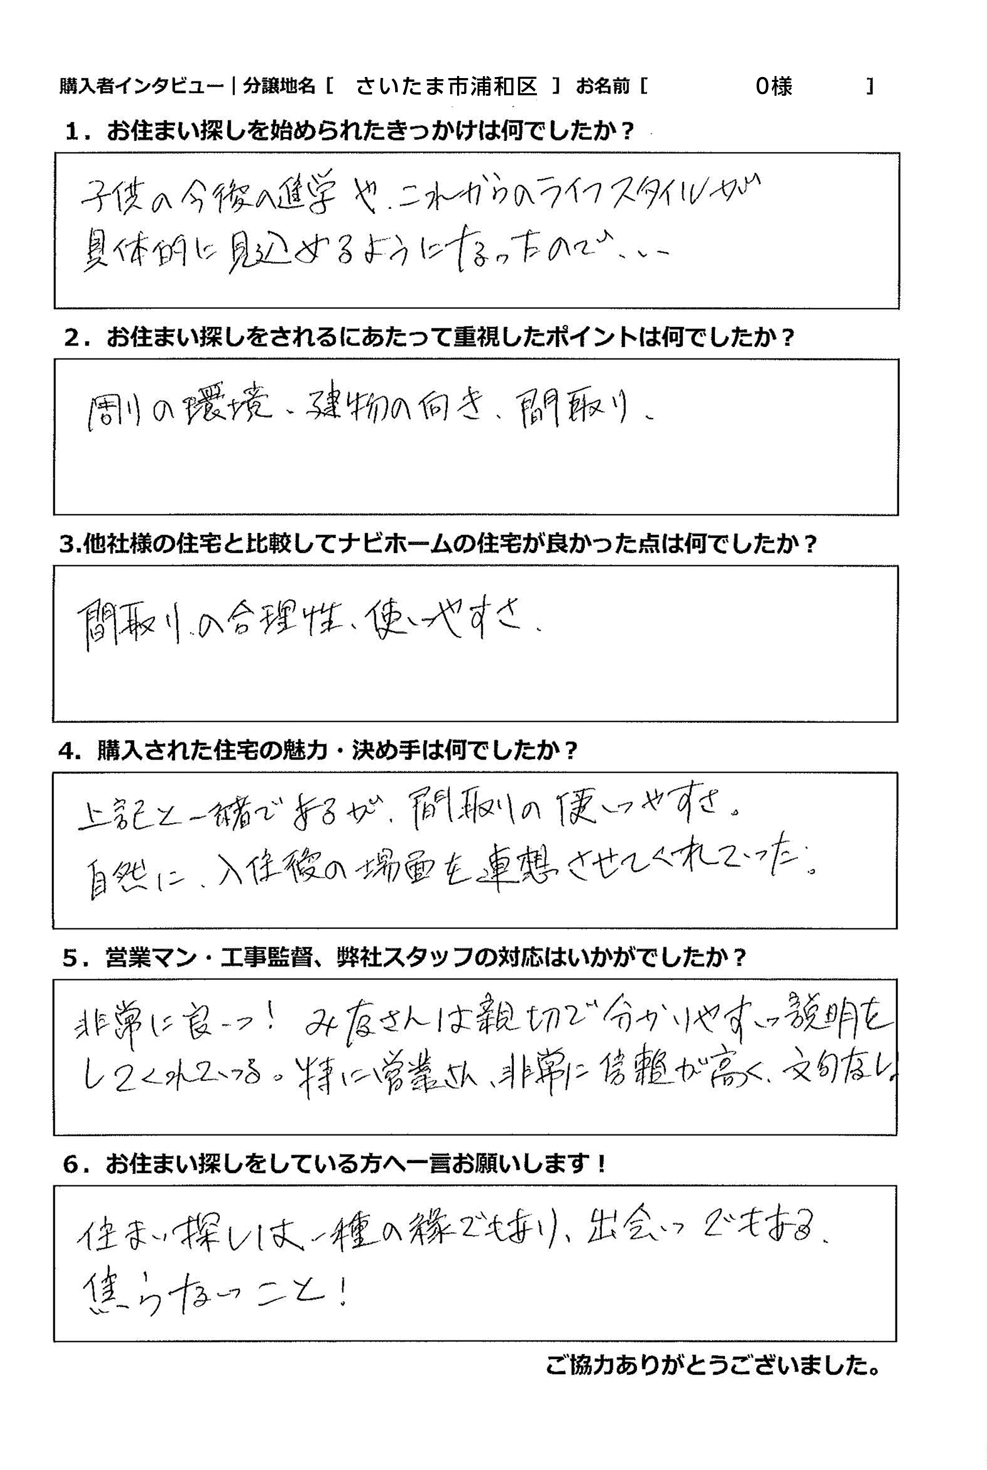 購入者インタビュー｜分譲地名 [ さいたま市浦和区 ] お名前 [ O様 ]
１．お住まい探しを始められたきっかけは何でしたか？
子供の今後の進学や、これからのライフスタイルが
具体的に見込めるようになったので、、、
２．お住まい探しをされるにあたって重視したポイントは何でしたか？
周りの環境、建物の向き、間取り、
3.他社様の住宅と比較してナビホームの住宅が良かった点は何でしたか？
間取りの合理性、使いやすさ、
４．購入された住宅の魅力・決め手は何でしたか？
上記と一緒であるが、間取りの使いやすさ。
自然に、入住後の場面を連想させてくれていった。
５．営業マン・工事監督、弊社スタッフの対応はいかがでしたか？
非常に良いっ！みなさんは親切で分かりやすい説明を
してくれている。特に営業さん、非常に信頼が高く、文句なし。
６．お住まい探しをしている方へ一言お願いします！
住まい探しは、一種の縁でもあり、出会いでもある、
焦らないこと！
ご協力ありがとうございました。